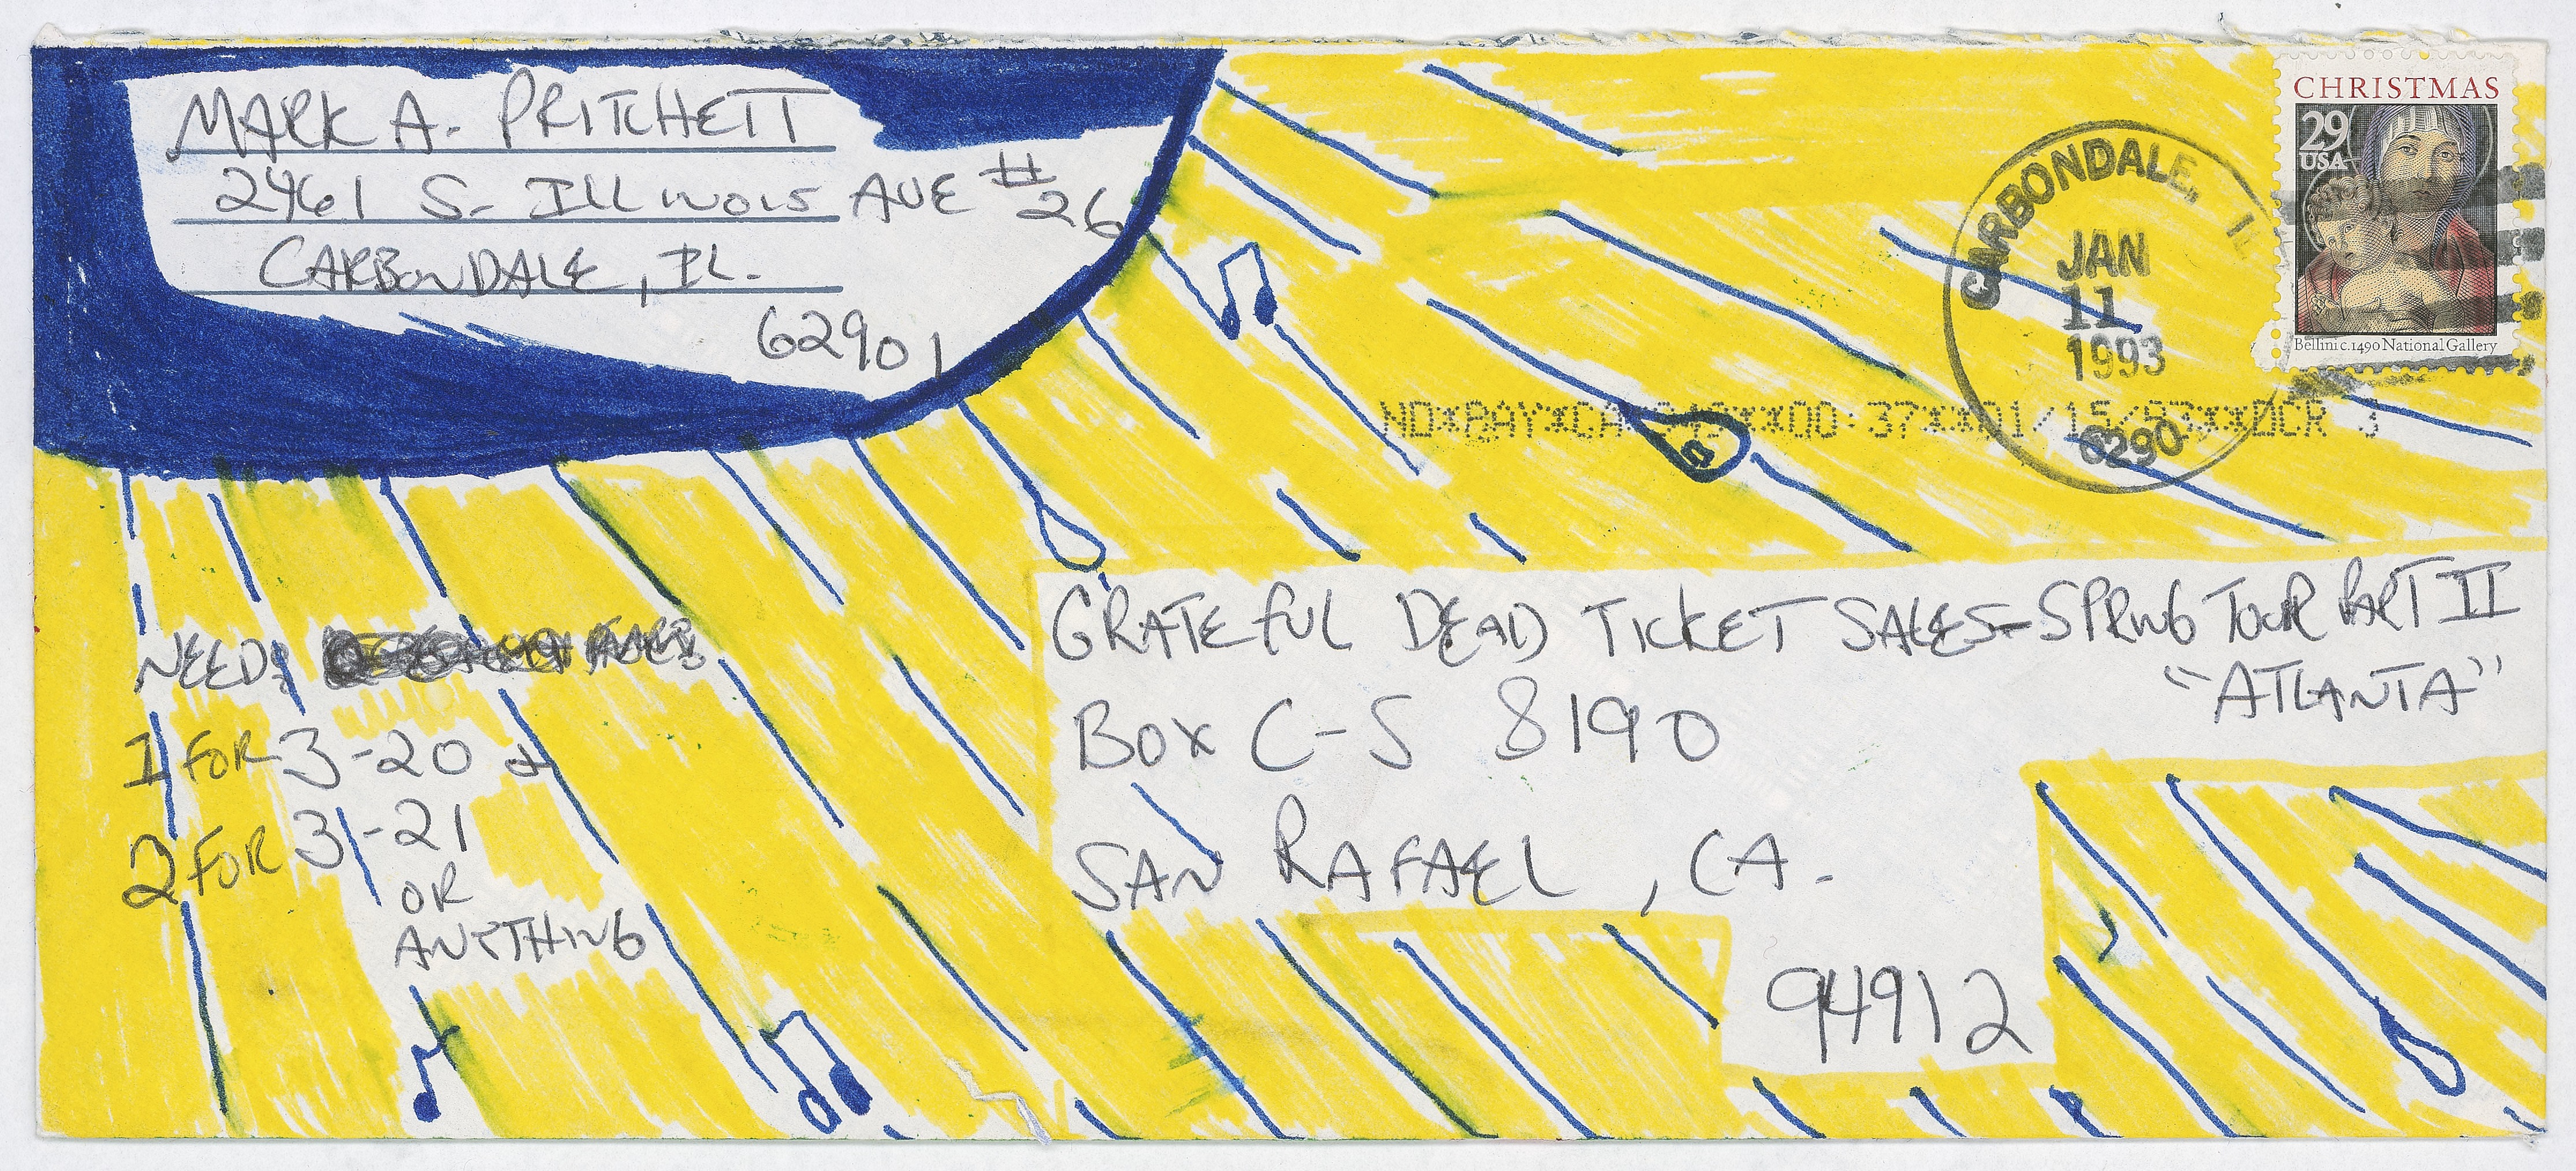 MARK A. PRITCHETT
2461 S. ILLINOIS AVE #26
CARBONDALE, IL.
62901
CHRISTMAS
29
USA
Bellini c.1490 National Gallery
CARBONDALE, IL
JAN
11
1993
6290
GRATEFUL DEAD TICKET SALES-SPRING TOUR PART II
"ATLANTA"
BOX C-S 8190
SAN RAFAEL, CA.
94912
NEED:
1 FOR 3-20 &
2 FOR 3-21
OR
ANYTHING